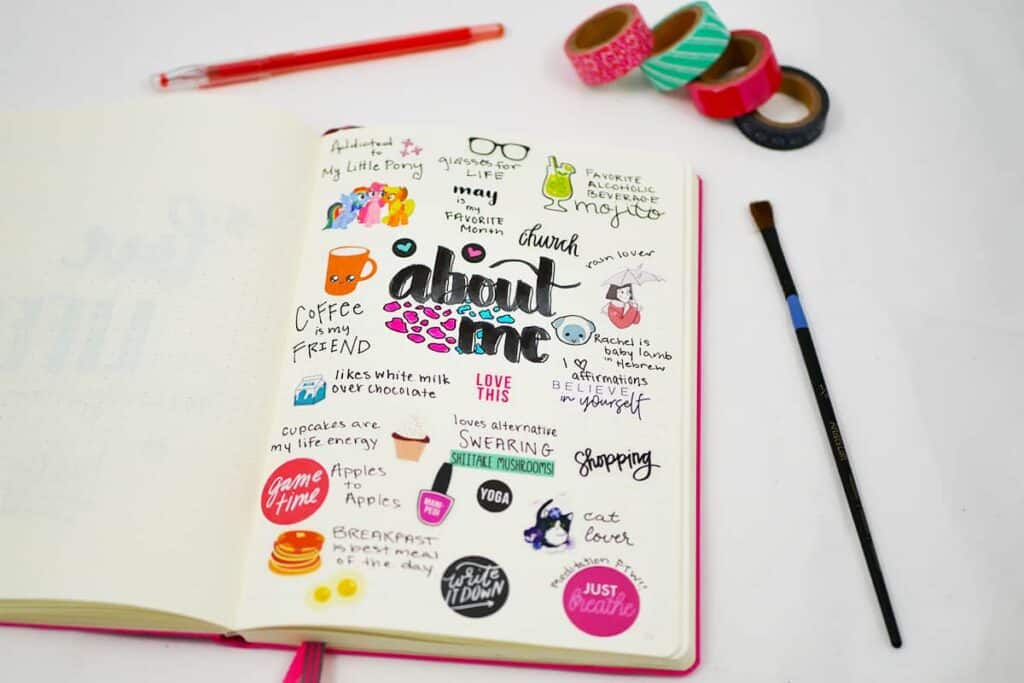 Addicted
to
My Little Pony
glasses for
LIFE
may
is my
FAVORITE
Month
FAVORITE
ALCOHOLIC
BEVERAGE
mojito
church
rain lover
about
me
COFFEE
is my
FRIEND
Rachel is
baby lamb
in Hebrew
likes white milk
over chocolate
LOVE
THIS
I ♡
affirmations
BELIEVE
in yourself
cupcakes are
my life energy
loves alternative
SWEARING
SHIITAKE MUSHROOMS!
shopping
game
time
Apples
to
Apples
MANI-
PEDI
YOGA
cat
lover
BREAKFAST
is best meal
of the day
write
IT DOWN
meditation FTW!
JUST
breathe